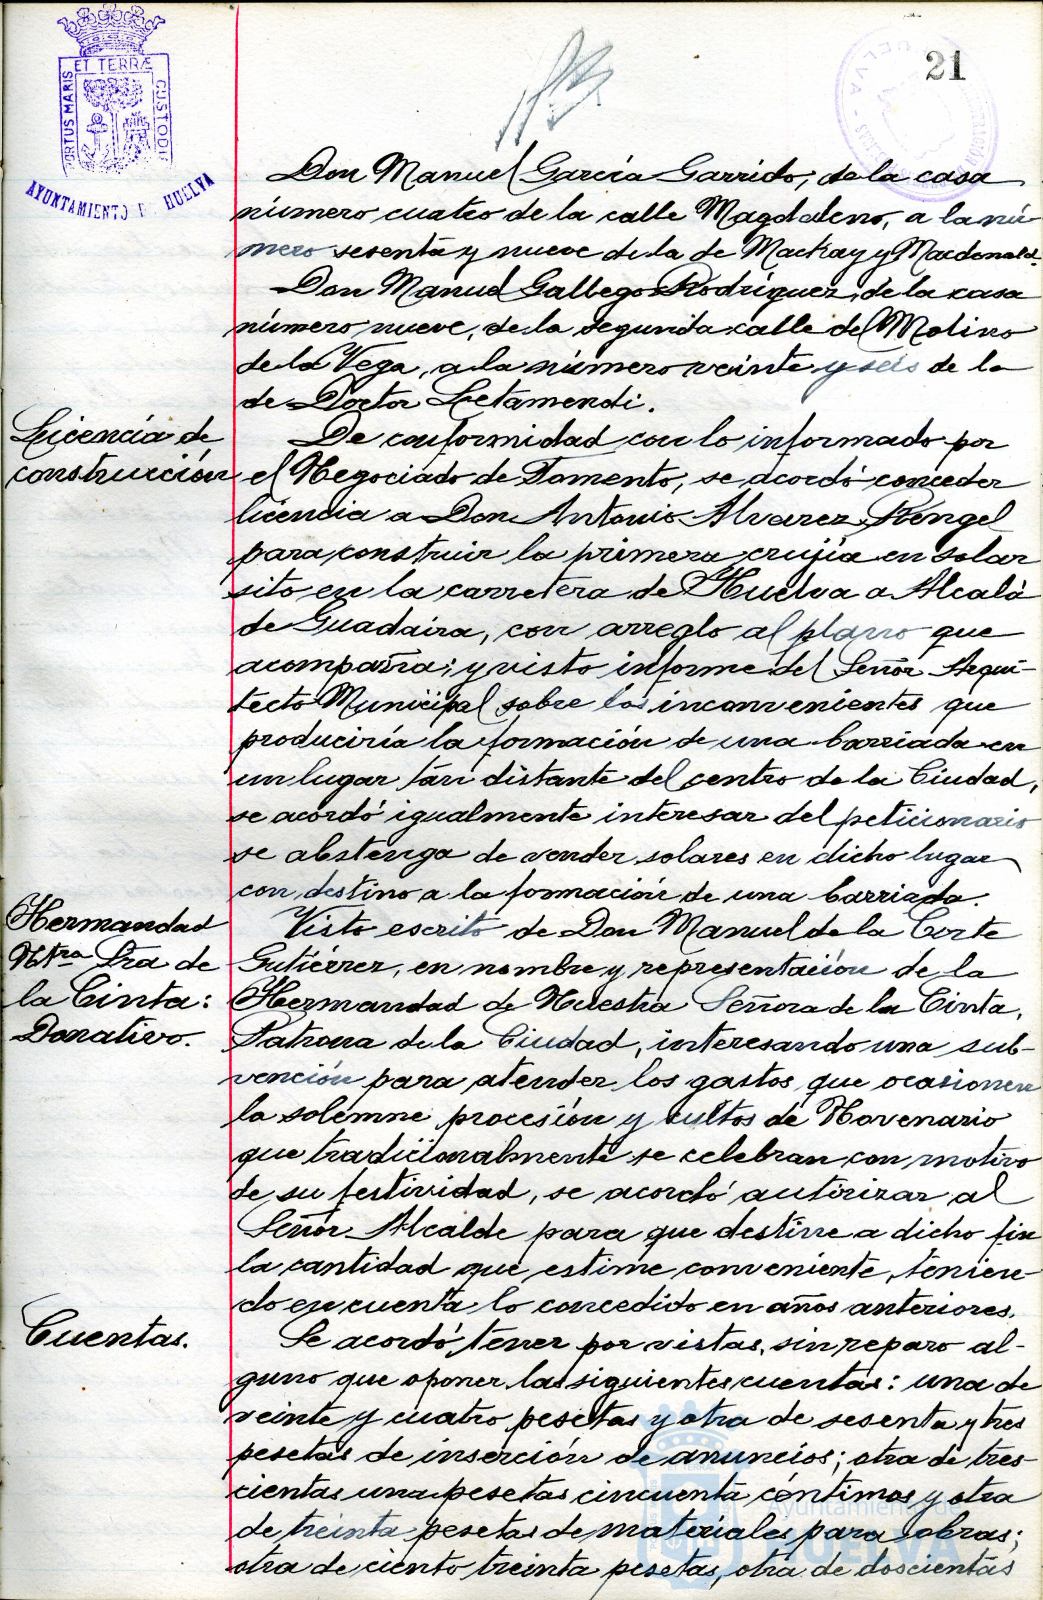 21
ET TERRÆ
PORTUS MARIS
CUSTODIA
AYUNTAMIENTO DE HUELVA
Don Manuel García Garrido, de la casa
número cuatro de la calle Magdaleno, a la nú-
mero sesenta y nueve de la de Mackay y Macdonald.
Don Manuel Gallego Rodríguez, de la casa
número nueve, de la segunda calle del Molino
de la Vega, a la número veinte y seis de la
de Doctor Letamendi.
Licencia de
construcción
De conformidad con lo informado por
el Negociado de Fomento, se acordó conceder
licencia a Don Antonio Alvarez Rengel
para construir la primera crujía en solar
sito en la carretera de Huelva a Alcalá
de Guadaira, con arreglo al plano que
acompaña; y visto informe del Señor Arqui-
tecto Municipal sobre los inconvenientes que
produciría la formación de una barriada en
un lugar tan distante del centro de la Ciudad,
se acordó igualmente interesar del peticionario
se abstenga de vender solares en dicho lugar
con destino a la formación de una barriada.
Hermandad
Ntra Sra de
la Cinta:
Donativo.
Visto escrito de Don Manuel de la Corte
Gutiérrez, en nombre y representación de la
Hermandad de Nuestra Señora de la Cinta,
Patrona de la Ciudad, interesando una sub-
vención para atender los gastos que ocasionen
la solemne procesión y cultos de Novenario
que tradicionalmente se celebran con motivo
de su festividad, se acordó autirizar al
Señor Alcalde para que destine a dicho fin
la cantidad que estime conveniente, tenien-
do en cuenta lo concedido en años anteriores.
Cuentas.
Se acordó tener por vistas, sin reparo al-
guno que oponer, las siguientes cuentas: una de
veinte y cuatro pesetas y otra de sesenta y tres
pesetas de inserción de anuncios; otra de tres-
cientas una pesetas cincuenta céntimos y otra
de treinta pesetas de materiales para obras;
otra de ciento treinta pesetas, otra de doscientas
Ayuntamiento de
HUELVA